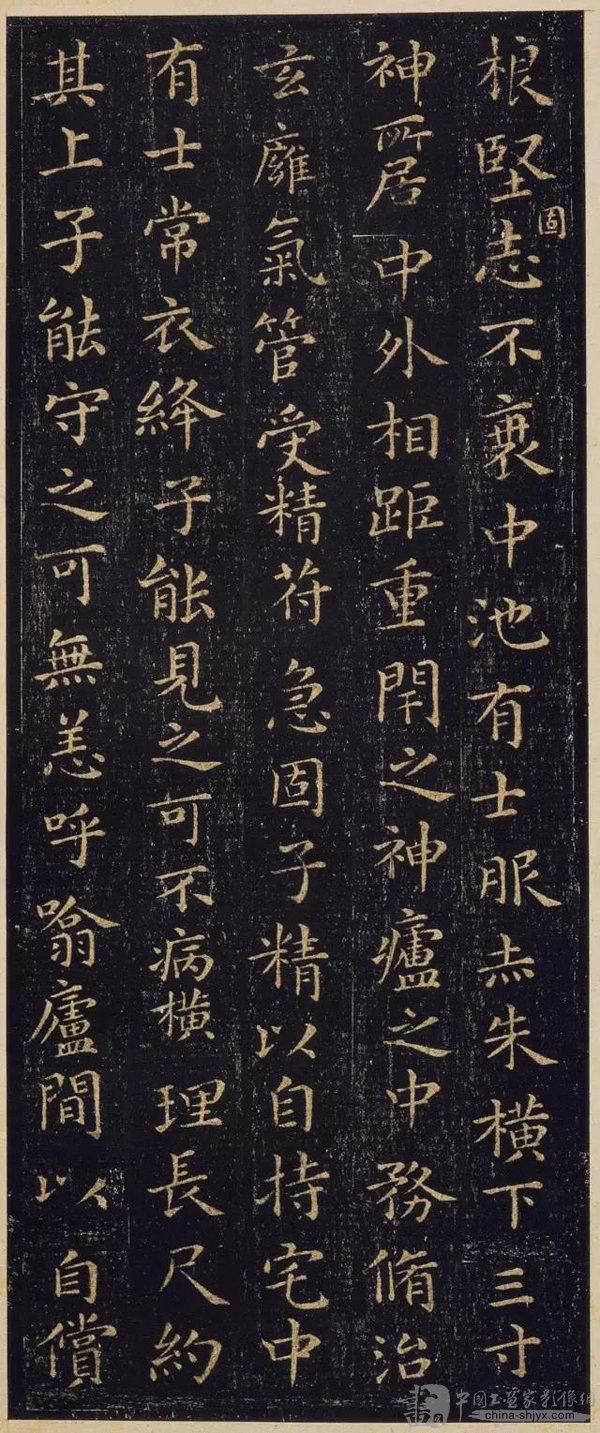 根堅志不衰中池有士服赤朱横下三寸
固
神所居中外相距重閇之神廬之中務脩治
玄廱氣管受精苻急固子精以自持宅中
有士常衣絳子能見之可不病横理長尺約
其上子能守之可無恙呼噏廬間以自償
中国书画家影像网
china-shjyx.com